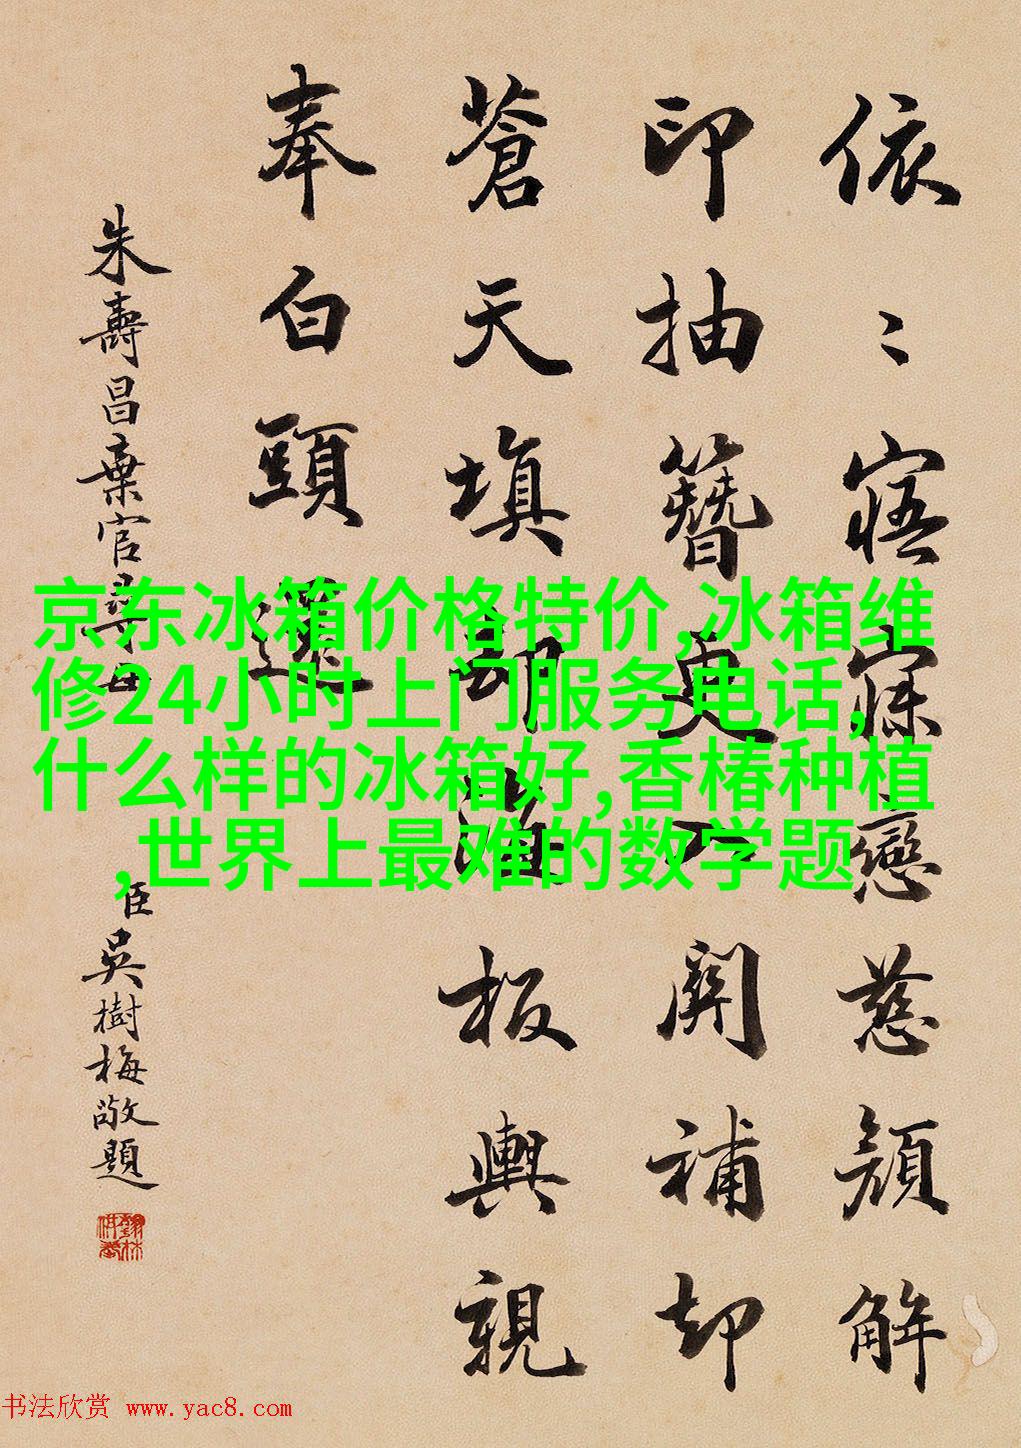 依〻寤寐戀慈顏解
印抽簪更不關補却
蒼天填却海板輿親
奉白頭還
朱壽昌棄官尋母
臣吳樹梅敬題
京东冰箱价格特价,冰箱维
修24小时上门服务电话,
什么样的冰箱好,香椿种植
,世界上最难的数学题
书法欣赏 www.yac8.com